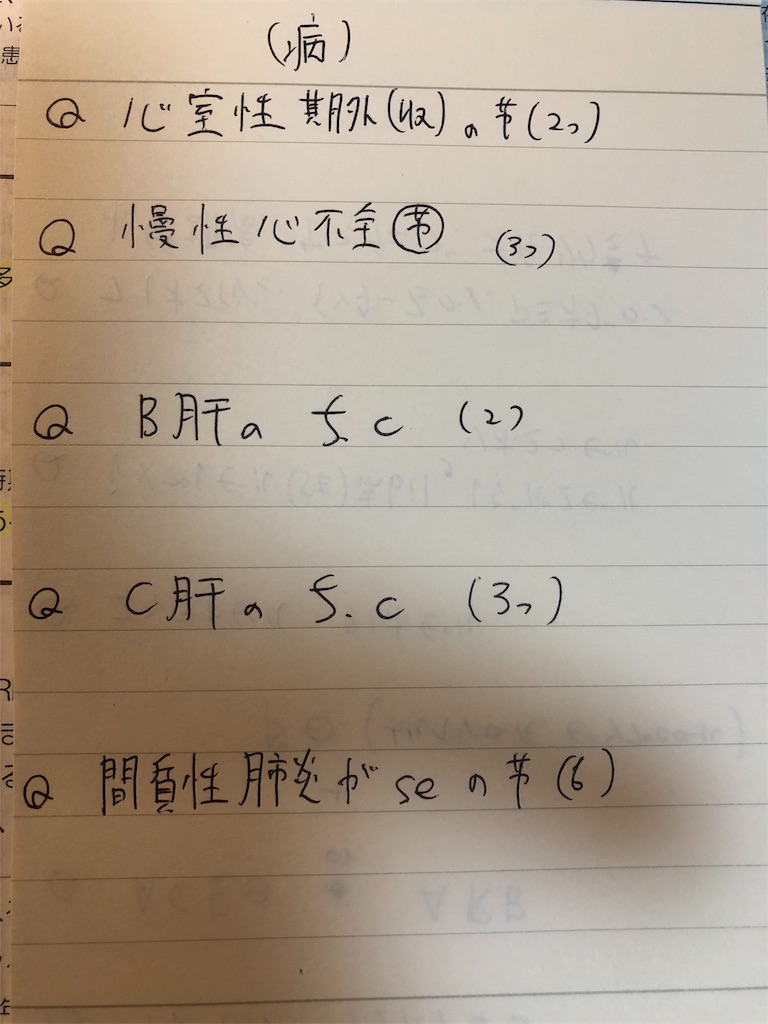 (病)
Q 心室性期外(収)の芐(2つ)
Q 慢性心不全芐 (3つ)
Q B肝の c (2)
Q C肝の c (3つ)
Q 間質性肺炎が seの芐(6)
ACE
ARB